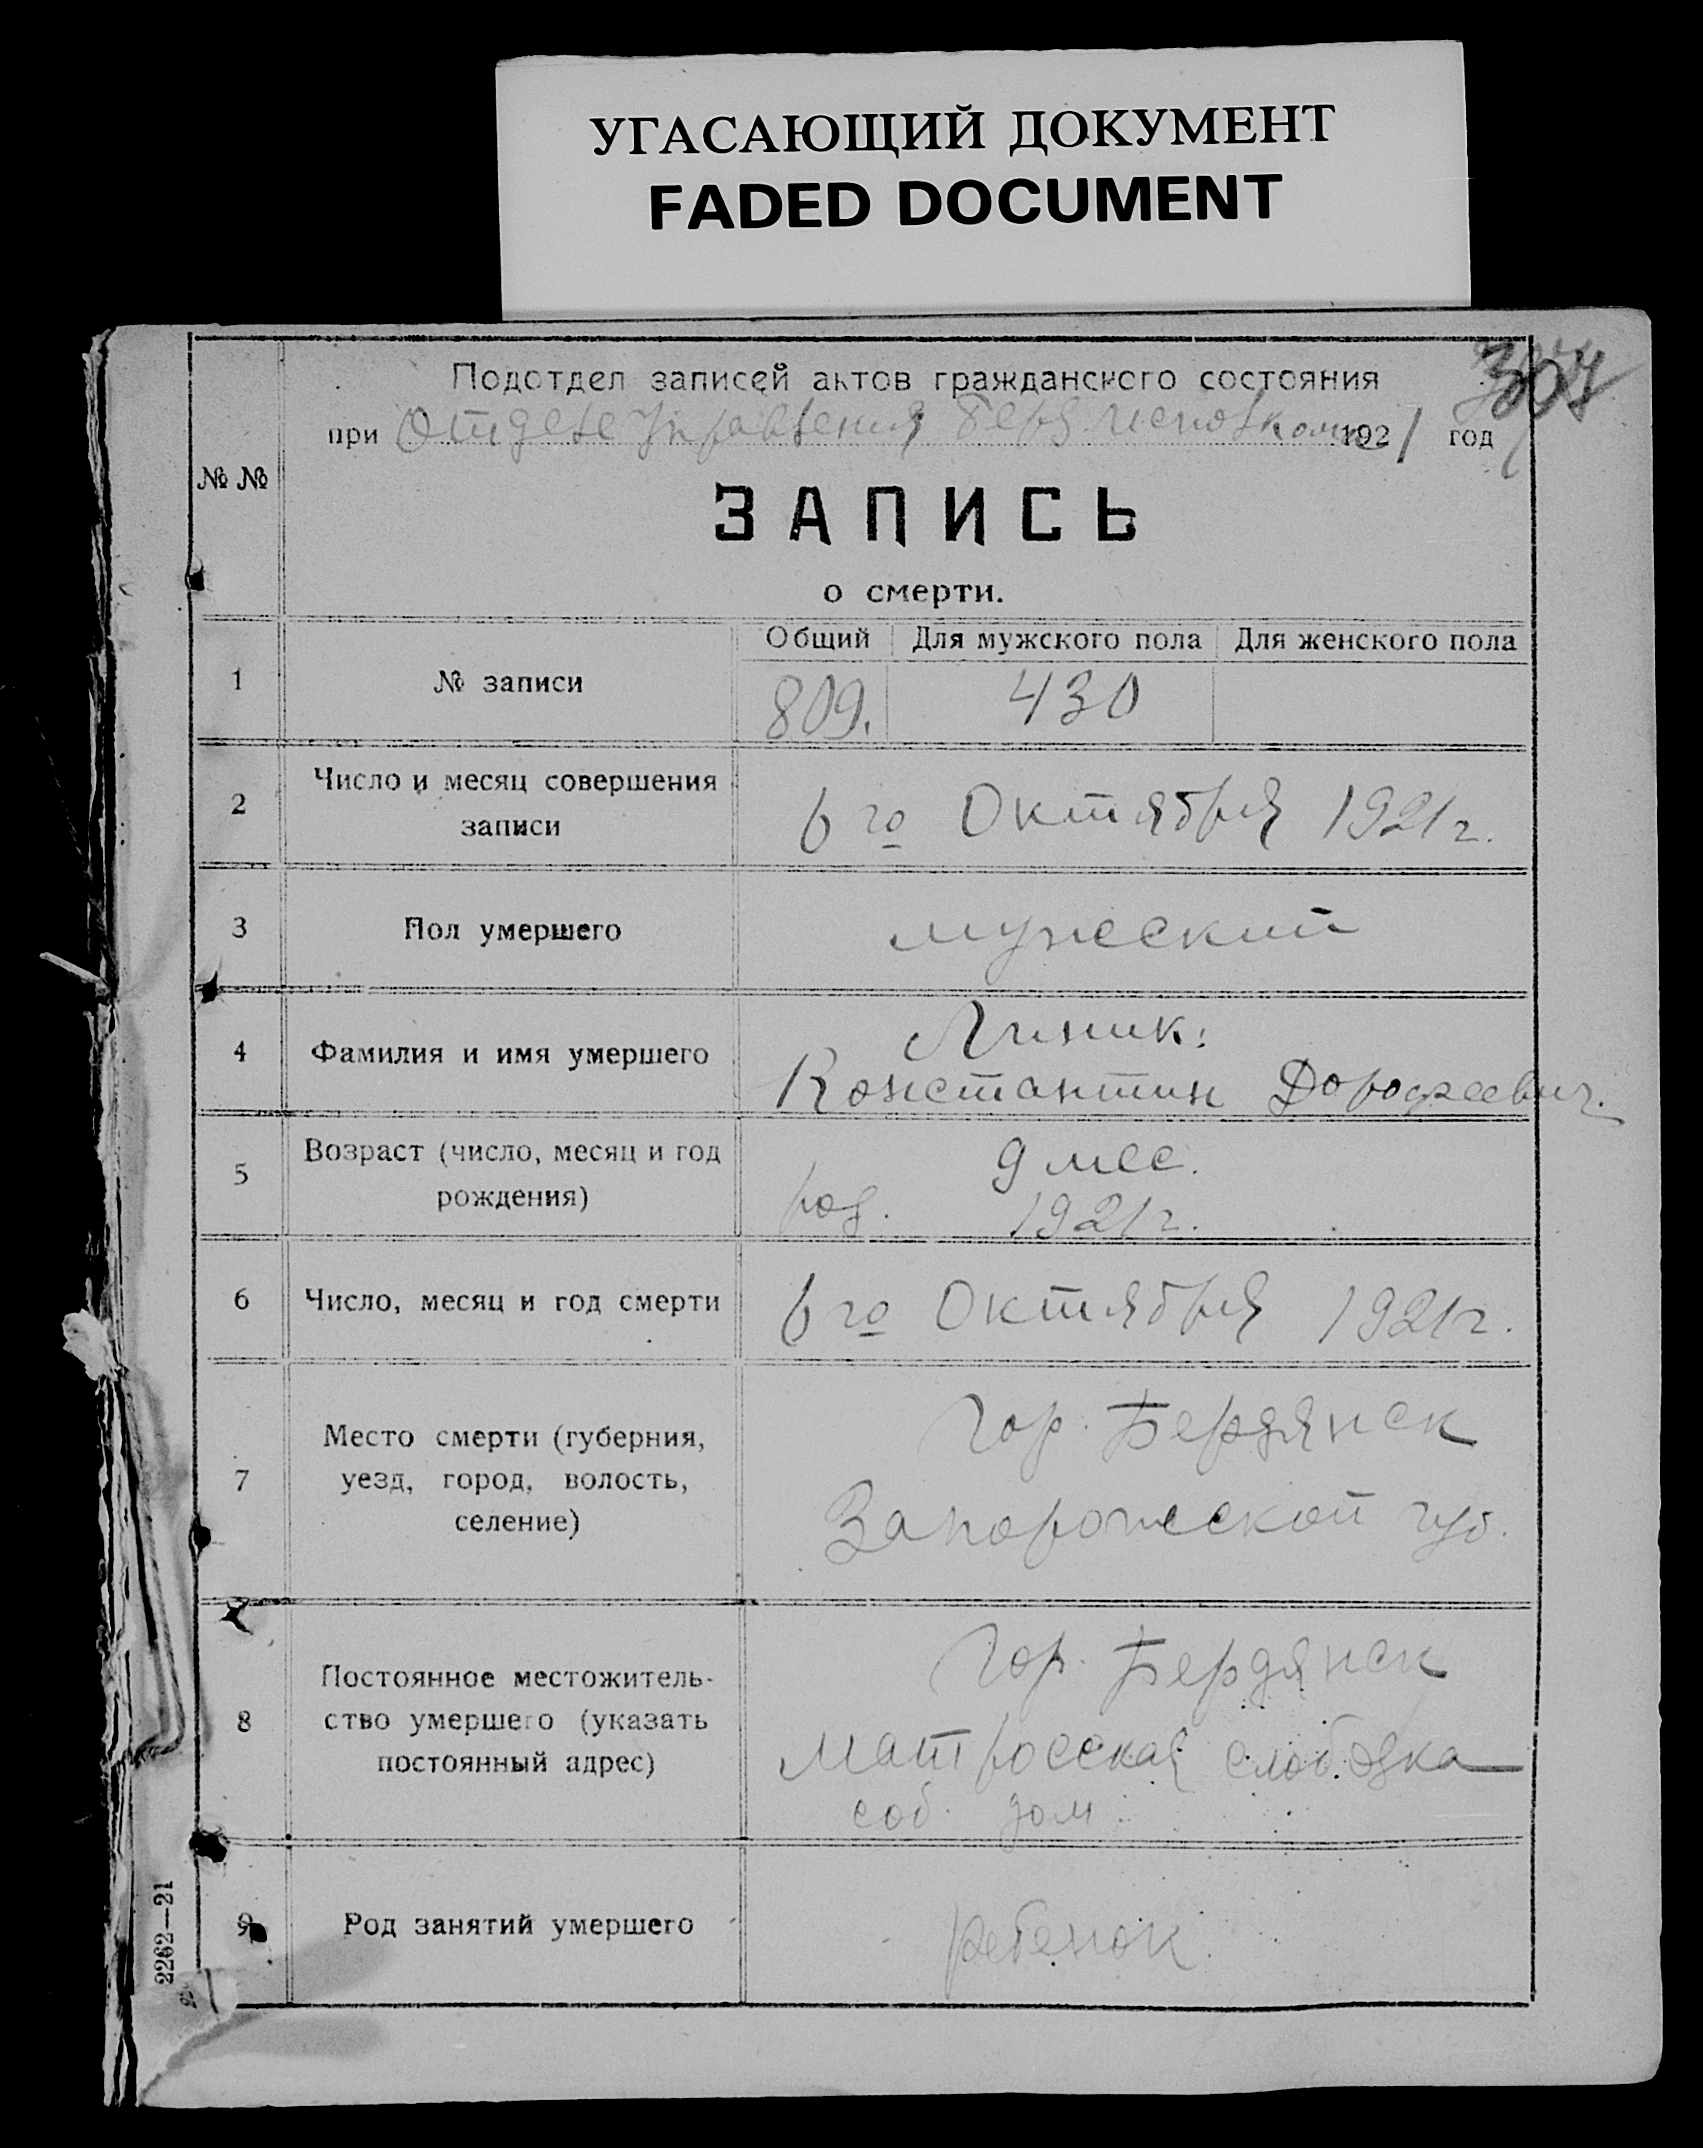 УГАСАЮЩИЙ ДОКУМЕНТ
FADED DOCUMENT
Подотдел записей актов гражданского состояния
при Отделе Управления Берд. исполкома 1921 год
№ №
ЗАПИСЬ
о смерти.
1 № записи
Общий Для мужского пола Для женского пола
809. 430
2 Число и месяц совершения
записи
6го Октября 1921 г.
3 Пол умершего
мужеский
4 Фамилия и имя умершего
Линик.
Константин Дорофеевич.
5 Возраст (число, месяц и год
рождения)
9 мес.
род. 1921 г.
6 Число, месяц и год смерти
6го Октября 1921 г.
7 Место смерти (губерния,
уезд, город, волость,
селение)
Гор. Бердянск
Запорожеской губ.
8 Постоянное местожитель-
ство умершего (указать
постоянный адрес)
Гор. Бердянск
Матросская слободка
соб. дом
9 Род занятий умершего
ребенок.
2262—21